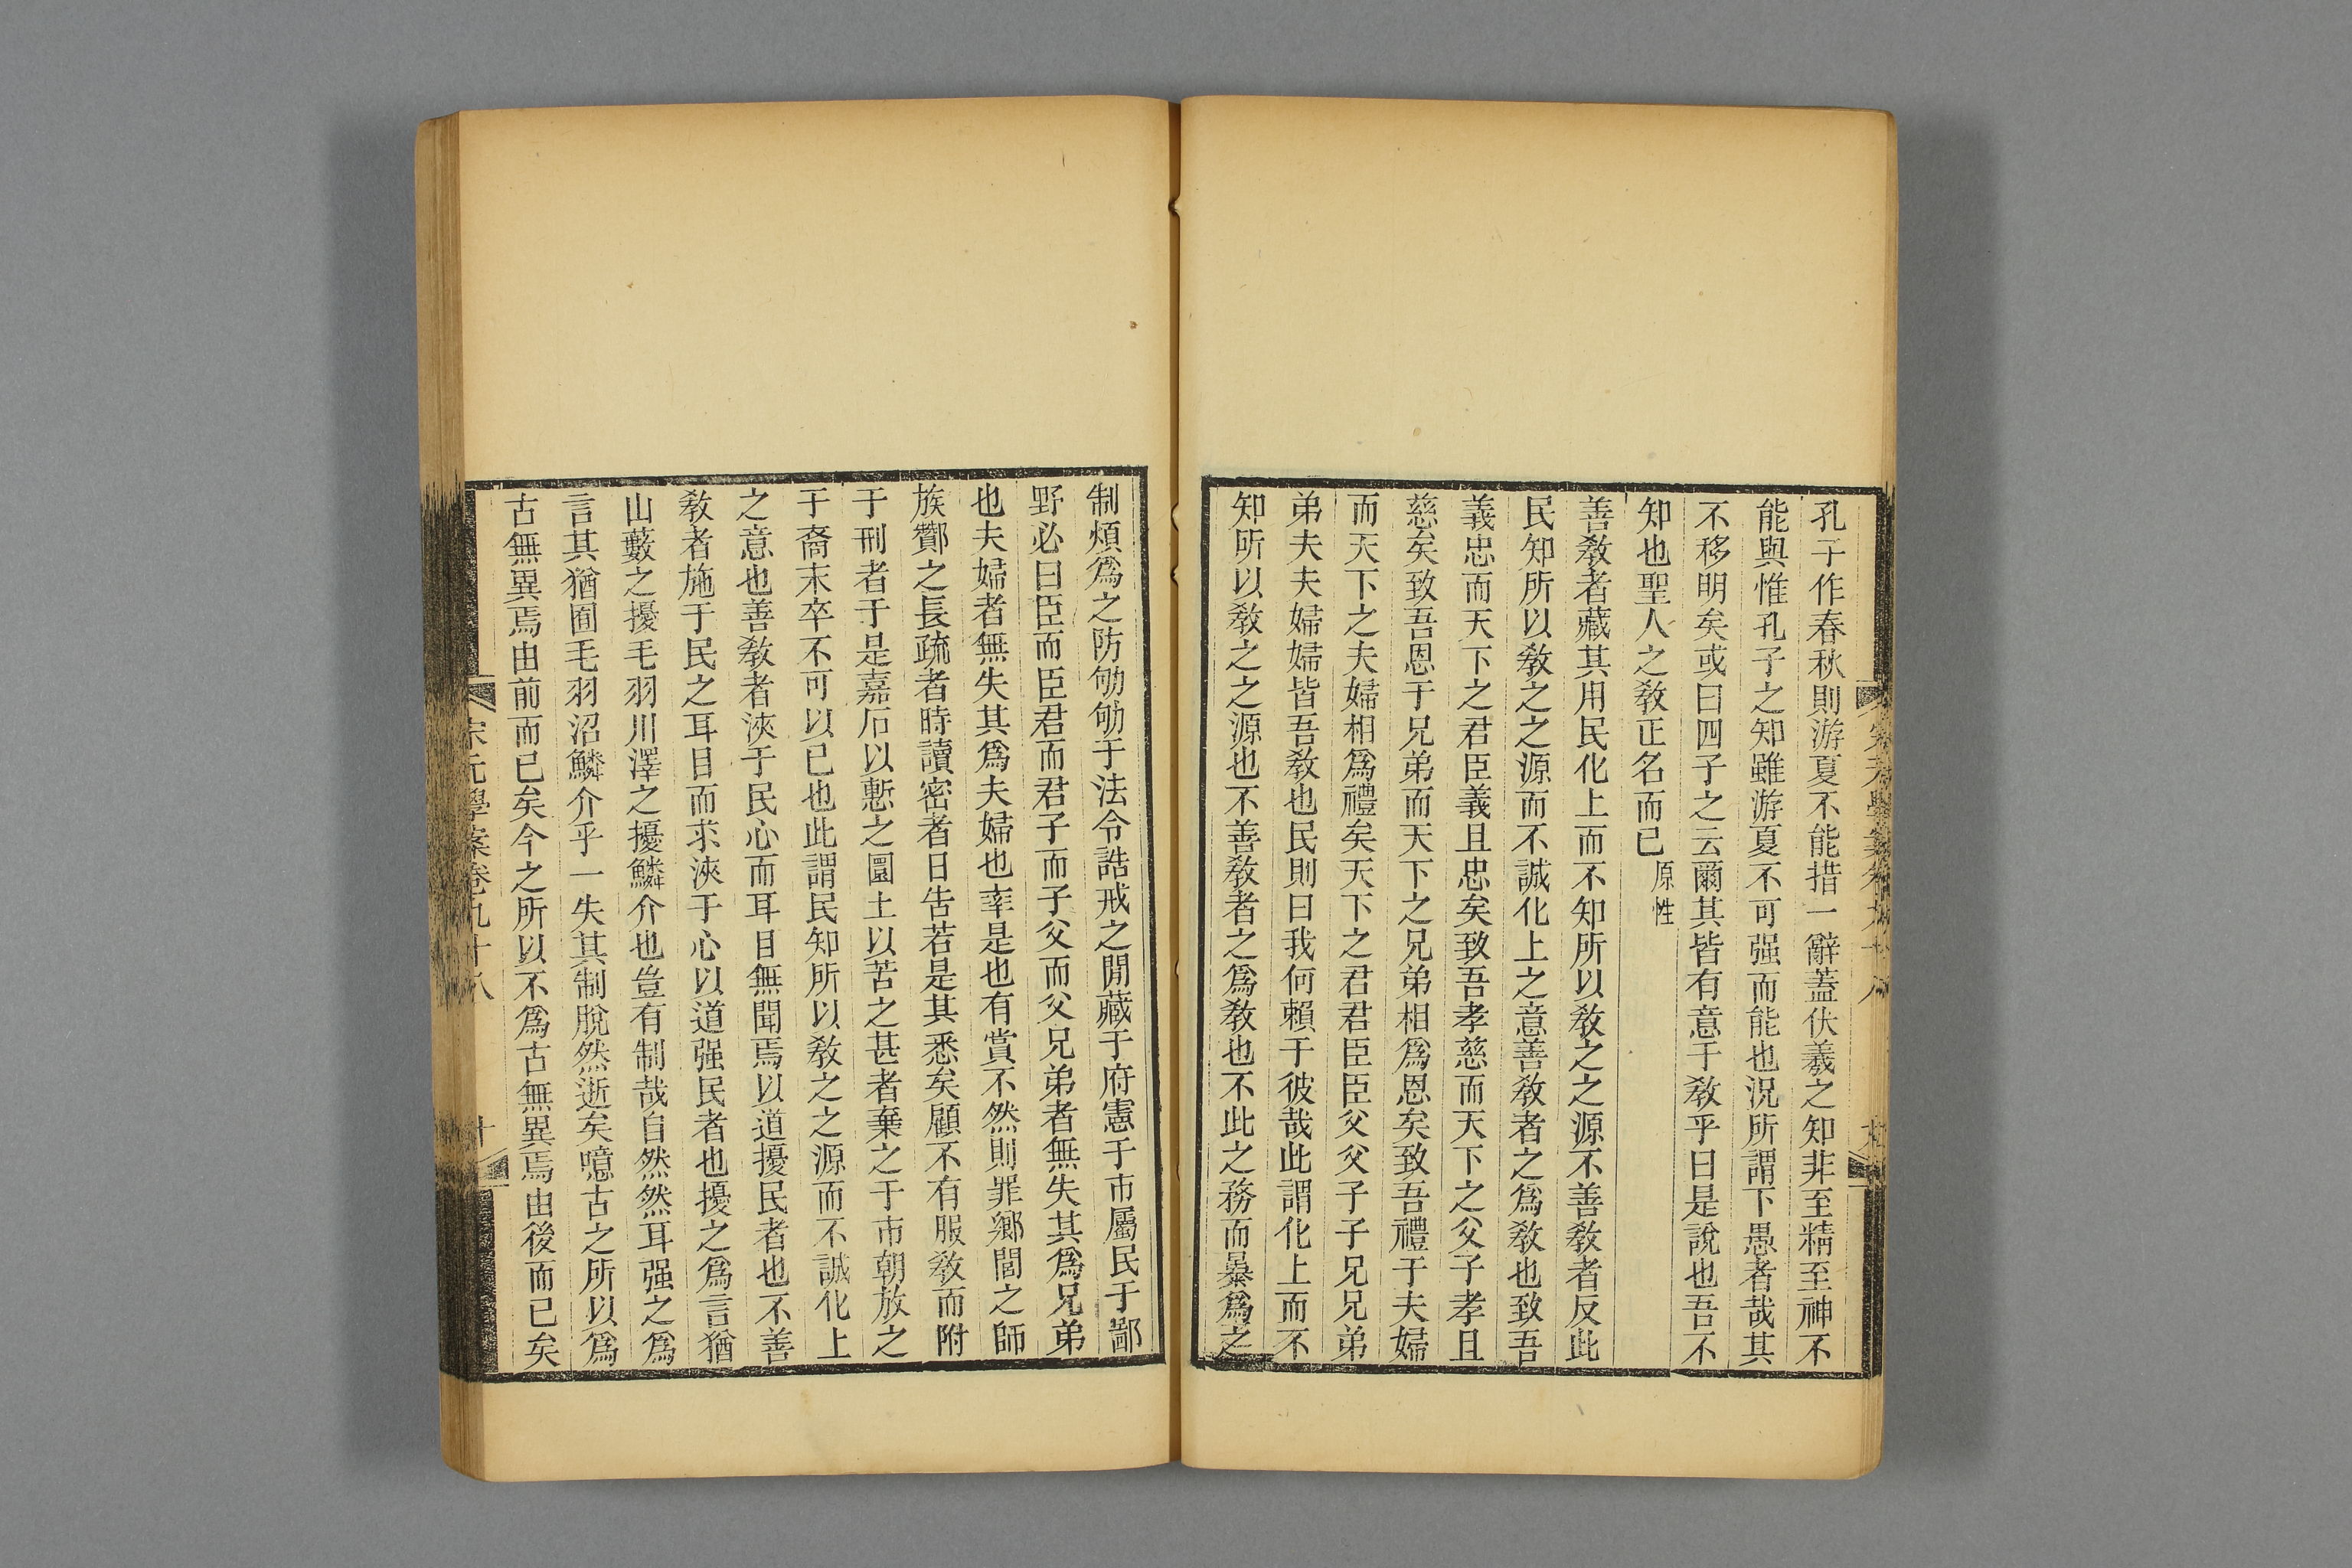 孔子作春秋則游夏不能措一辭蓋伏羲之知非至精至神不
能與惟孔子之知雖游夏不可强而能也況所謂下愚者哉其
不移明矣或曰四子之云爾其皆有意于教乎曰是說也吾不
知也聖人之教正名而已原性
善教者藏其用民化上而不知所以教之之源不善教者反此
民知所以教之之源而不誠化上之意善教者之爲教也致吾
義忠而天下之君臣義且忠矣致吾孝慈而天下之父子孝且
慈矣致吾恩于兄弟而天下之兄弟相爲恩矣致吾禮于夫婦
而天下之夫婦相爲禮矣天下之君君臣臣父父子子兄兄弟
弟夫夫婦婦皆吾教也民則曰我何賴于彼哉此謂化上而不
知所以教之之源也不善教者之爲教也不此之務而暴爲之
制煩爲之防劬劬于法令誥戒之閒藏于府憲于市屬民于鄙
野必曰臣而臣君而君子而子父而父兄弟者無失其爲兄弟
也夫婦者無失其爲夫婦也率是也有賞不然則罪鄉閭之師
族酇之長疏者時讀密者日告若是其悉矣顧不有服教而附
于刑者于是嘉石以慙之圜土以苦之甚者棄之于市朝放之
于裔末卒不可以已也此謂民知所以教之之源而不誠化上
之意也善教者浹于民心而耳目無聞焉以道擾民者也不善
教者施于民之耳目而求浹于心以道强民者也擾之爲言猶
山藪之擾毛羽川澤之擾鱗介也豈有制哉自然然耳强之爲
言其猶囿毛羽沼鱗介乎一失其制脫然逝矣噫古之所以爲
古無異焉由前而已矣今之所以不爲古無異焉由後而已矣
宋元學案卷九十八
十